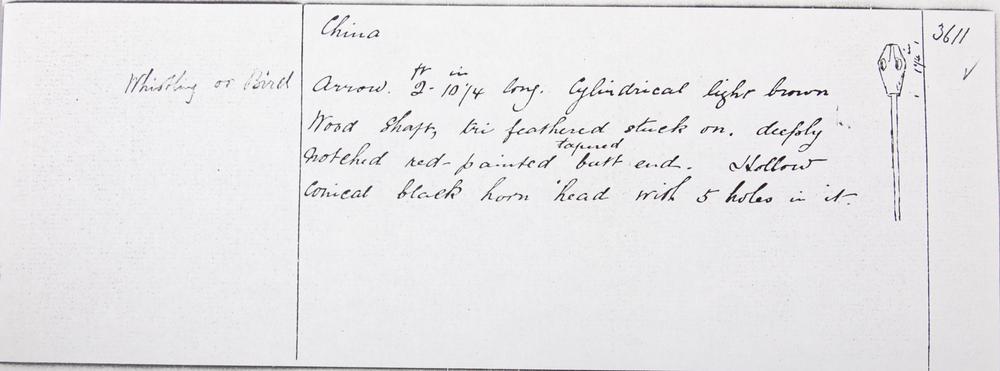 China
3611
Whistling or Bird
Arrow. 2 ft - 10 1/4 in long. Cylindrical light brown
Wood Shaft, tri feathered stuck on. deeply
notched red-painted tapered butt end. Hollow
Conical black horn head with 5 holes in it.